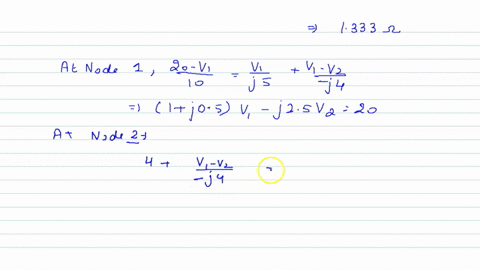 ⇒ 1.333 Ω
At Node 1, (20-V₁)/10 = V₁/j5 + (V₁-V₂)/-j4
⇒ (1+j0.5) V₁ - j2.5V₂ = 20
At Node 2:
4 + (V₁-V₂)/-j4